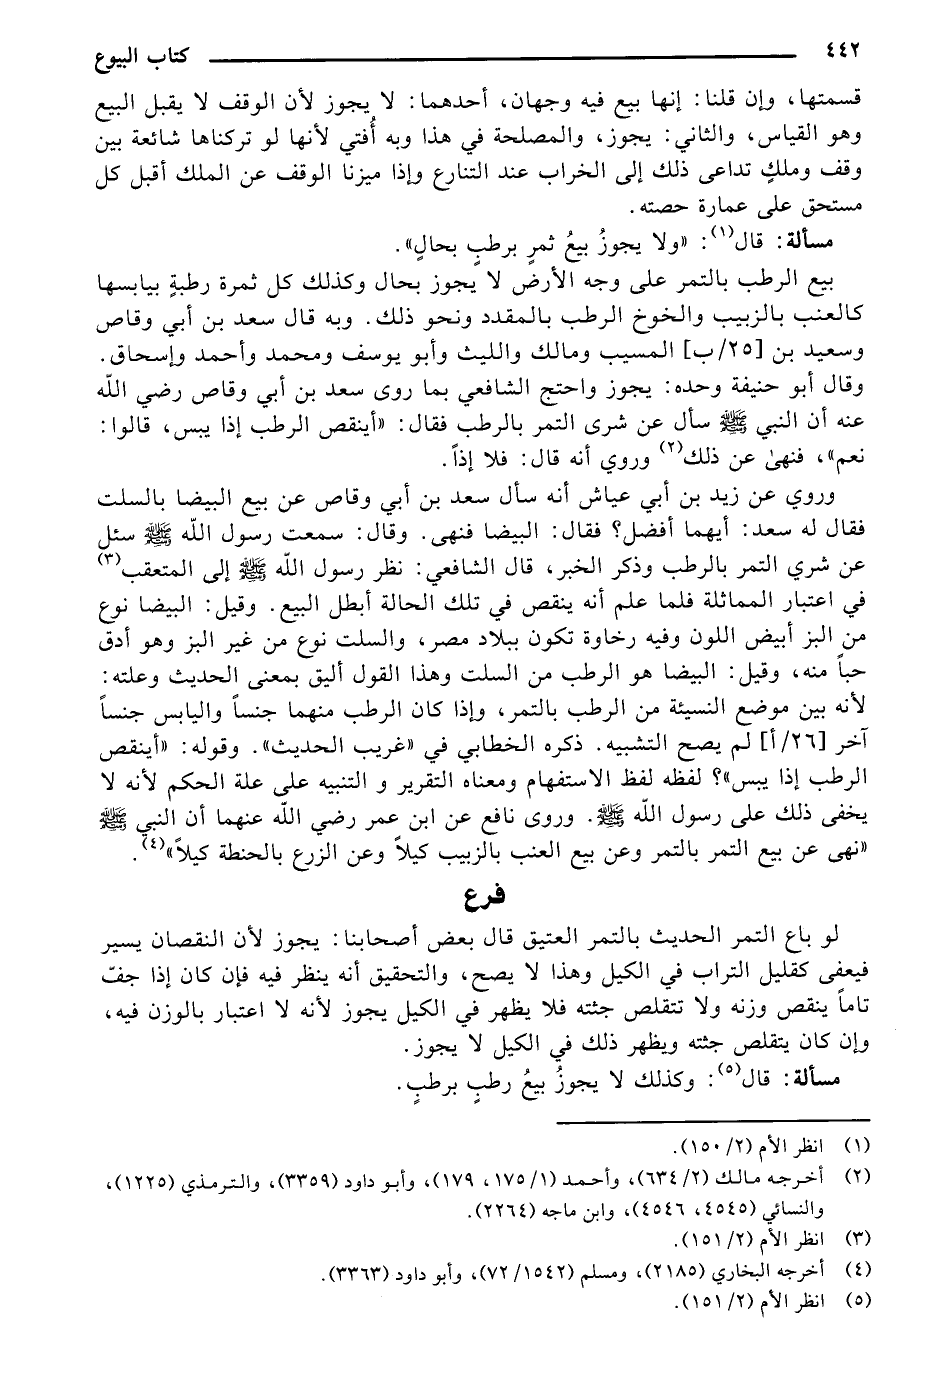 ٤٤٢ كتاب البيوع
قسمتها، وإن قلنا: إنها بيع فيه وجهان، أحدهما: لا يجوز لأن الوقف لا يقبل البيع
وهو القياس، والثاني: يجوز، والمصلحة في هذا وبه أُفتي لأنها لو تركناها شائعة بين
وقف وملكٍ تداعى ذلك إلى الخراب عند التنارع وإذا ميزنا الوقف عن الملك أقبل كل
مستحق على عمارة حصته.
مسألة: قال(١): «ولا يجوزُ بيعُ ثمرٍ برطبٍ بحالٍ».
بيع الرطب بالتمر على وجه الأرض لا يجوز بحال وكذلك كل ثمرة رطبةٍ بيابسها
كالعنب بالزبيب والخوخ الرطب بالمقدد ونحو ذلك. وبه قال سعد بن أبي وقاص
وسعيد بن [٢٥/ب] المسيب ومالك والليث وأبو يوسف ومحمد وأحمد وإسحاق.
وقال أبو حنيفة وحده: يجوز واحتج الشافعي بما روى سعد بن أبي وقاص رضي الله
عنه أن النبي ﷺ سأل عن شرى التمر بالرطب فقال: «أينقص الرطب إذا يبس، قالوا:
نعم»، فنهىٰ عن ذلك(٢) وروي أنه قال: فلا إذاً.
وروي عن زيد بن أبي عياش أنه سأل سعد بن أبي وقاص عن بيع البيضا بالسلت
فقال له سعد: أيهما أفضل؟ فقال: البيضا فنهى. وقال: سمعت رسول الله ﷺ سئل
عن شري التمر بالرطب وذكر الخبر، قال الشافعي: نظر رسول الله ﷺ إلى المتعقب(٣)
في اعتبار المماثلة فلما علم أنه ينقص في تلك الحالة أبطل البيع. وقيل: البيضا نوع
من البز أبيض اللون وفيه رخاوة تكون ببلاد مصر، والسلت نوع من غير البز وهو أدق
حباً منه، وقيل: البيضا هو الرطب من السلت وهذا القول أليق بمعنى الحديث وعلته:
لأنه بين موضع النسيئة من الرطب بالتمر، وإذا كان الرطب منهما جنساً واليابس جنساً
آخر [٢٦/أ] لم يصح التشبيه. ذكره الخطابي في «غريب الحديث». وقوله: «أينقص
الرطب إذا يبس»؟ لفظه لفظ الاستفهام ومعناه التقرير و التنبيه على علة الحكم لأنه لا
يخفى ذلك على رسول الله ﷺ. وروى نافع عن ابن عمر رضي الله عنهما أن النبي ﷺ
«نهى عن بيع التمر بالتمر وعن بيع العنب بالزبيب كيلاً وعن الزرع بالحنطة كيلاً»(٤).
فرع
لو باع التمر الحديث بالتمر العتيق قال بعض أصحابنا: يجوز لأن النقصان يسير
فيعفى كقليل التراب في الكيل وهذا لا يصح، والتحقيق أنه ينظر فيه فإن كان إذا جفّ
تاماً ينقص وزنه ولا تتقلص جثته فلا يظهر في الكيل يجوز لأنه لا اعتبار بالوزن فيه،
وإن كان يتقلص جثته ويظهر ذلك في الكيل لا يجوز.
مسألة: قال(٥): وكذلك لا يجوزُ بيعُ رطبٍ برطبٍ.
(١) انظر الأم (٢/ ١٥٠).
(٢) أخرجه مالك (٢/ ٦٣٤)، وأحمد (١/ ١٧٥، ١٧٩)، وأبو داود (٣٣٥٩)، والترمذي (١٢٢٥)،
والنسائي (٤٥٤٥، ٤٥٤٦)، وابن ماجه (٢٢٦٤).
(٣) انظر الأم (٢/ ١٥١).
(٤) أخرجه البخاري (٢١٨٥)، ومسلم (١٥٤٢/ ٧٢)، وأبو داود (٣٣٦٣).
(٥) انظر الأم (٢/ ١٥١).